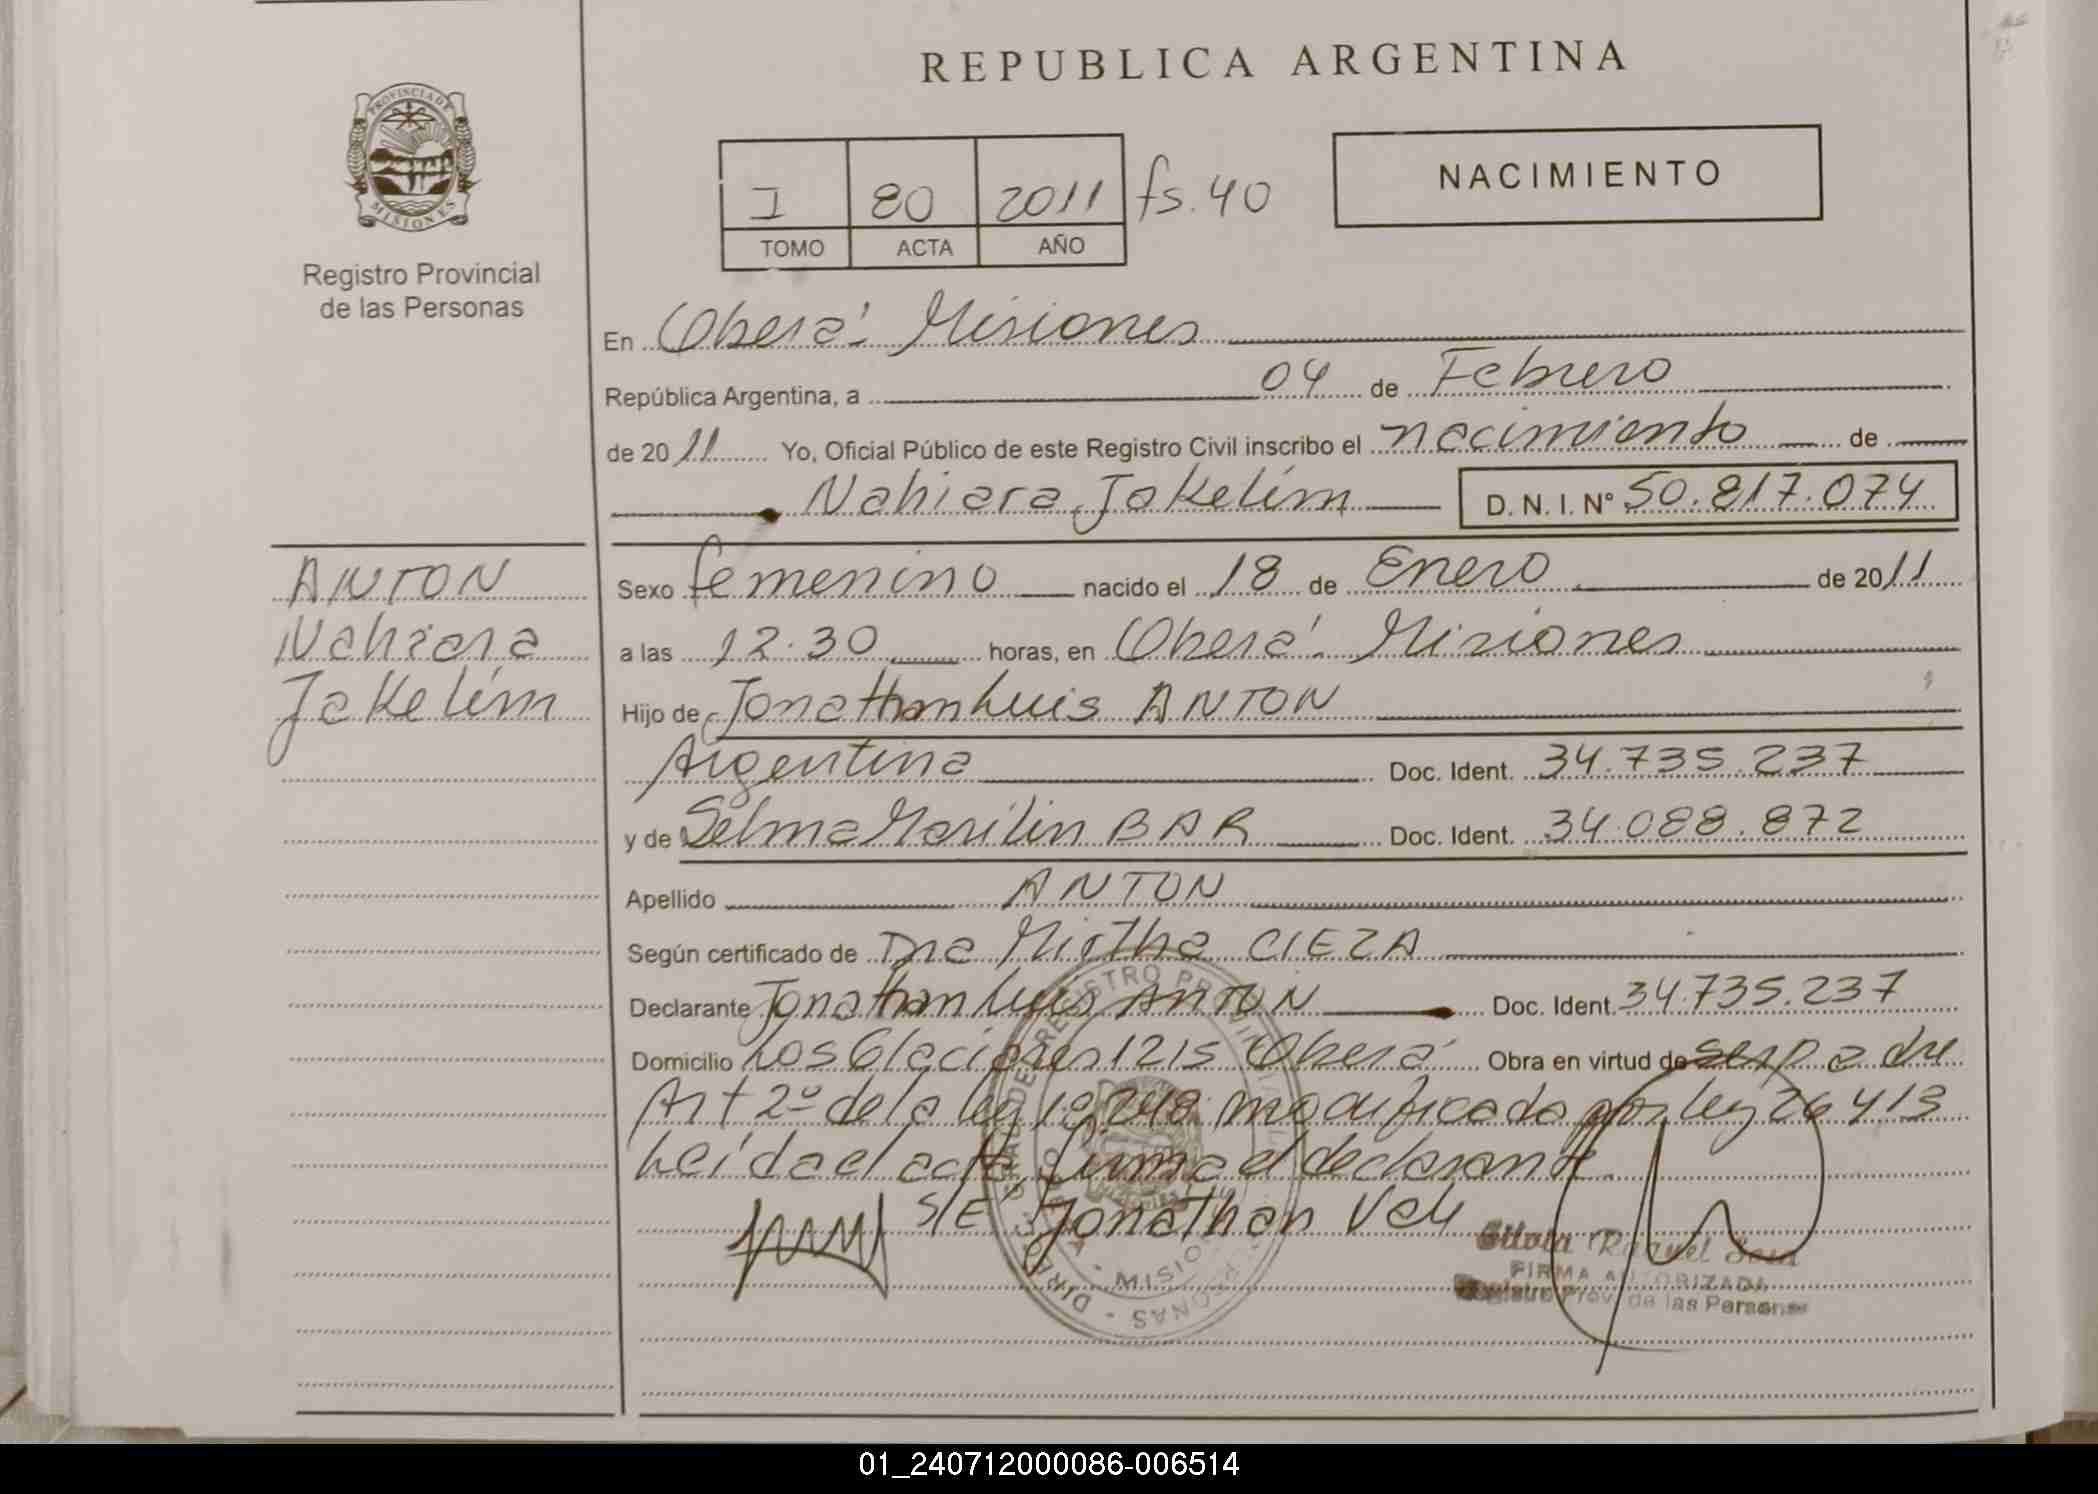 REPUBLICA ARGENTINA
PROVINCIA DE
MISIONES
Registro Provincial
de las Personas
I 80 2011 fs. 40
TOMO ACTA AÑO
NACIMIENTO
En Oberá Misiones
República Argentina, a 04 de Febrero
de 2011 Yo, Oficial Público de este Registro Civil inscribo el nacimiento de
Nahiara Jakelím D. N. I. Nº 50.817.074
ANTON
Nahiara
Jakelím
Sexo femenino nacido el 18 de Enero de 2011
a las 12.30 horas, en Oberá Misiones
Hijo de Jonathan Luis ANTON
Argentina Doc. Ident. 34.735.237
y de Selma Marilin BAR Doc. Ident. 34.088.872
Apellido ANTON
Según certificado de Dra Mirtha CIEZA
Declarante Jonathan Luis ANTON Doc. Ident. 34.735.237
Domicilio Los Glaciares 1215 Oberá Obra en virtud de ser padre
Art 2º de la ley 18.248 modificada por ley 26413
Leída el acta, firma el declarante.
S/E Jonathan Vale
Silvia Raquel Sosa
FIRMA AUTORIZADA
Registro Prov. de las Personas
01_240712000086-006514